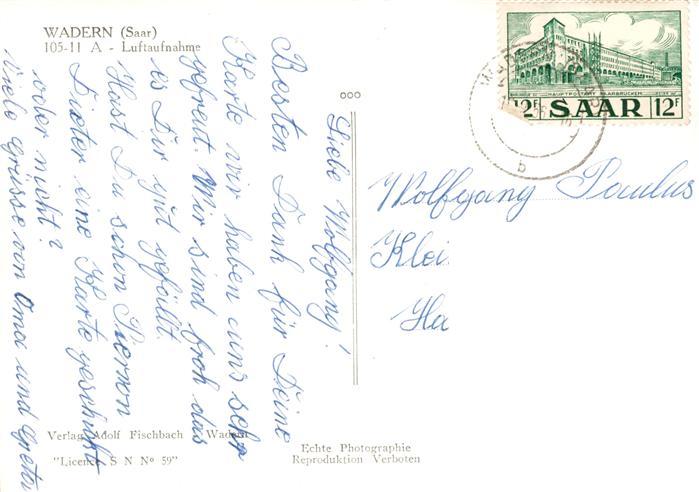 WADERN (Saar)
105-11 A - Luftaufnahme
Liebe Wolfgang!
Besten Dank für Deine
Karte wir haben uns sehr
gefreut Wir sind froh das
es Dir gut gefällt.
Hast Du schon
Dieter eine Karte geschickt
oder nicht?
viele Grüsse von Oma und Greta
Verlag Adolf Fischbach Wadern
"Licence S N Nº 59"
Echte Photographie
Reproduktion Verboten
HAUPTPOSTAMT SAARBRÜCKEN
12F SAAR 12F
b
Wolfgang Paulus
Klei
Ha